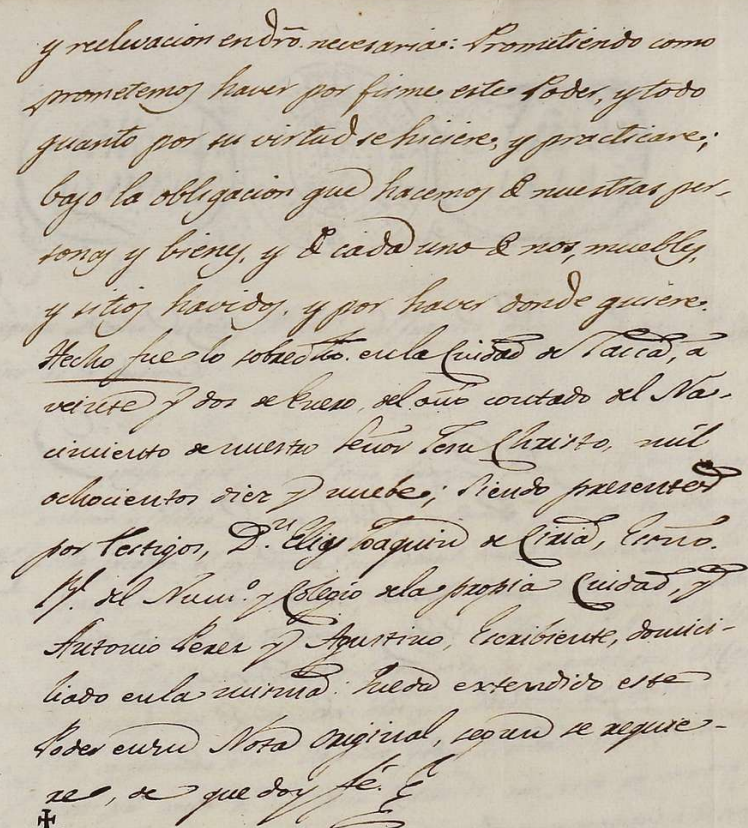 y relevacion en dr̃o. necesaria: Prometiendo como
prometemos haver por firme este Poder, y todo
quanto por su virtud se hiciere, y practicare;
bajo la obligacion que hacemos de nuestras per-
sonas y bienes, y de cada uno de nos, muebles,
y sitios havidos, y por haver donde quiere.
Hecho fue lo sobredho. en la Ciudad de Jacca, a
veinte y dos de Enero, del año contado del Na-
cimiento de nuestro Señor Jesu Christo, mil
ochocientos diez y nuebe; siendo presentes
por testigos, Dn. Joaquin de Ciria, Escno.
Rl. del Numo. y Colegio de la propia Ciudad, y
Antonio Perez y Agustino, Escribiente, domici-
liado en la misma: Queda extendido este
Poder en su Nota original, segun se requie-
re, de que doy fé.